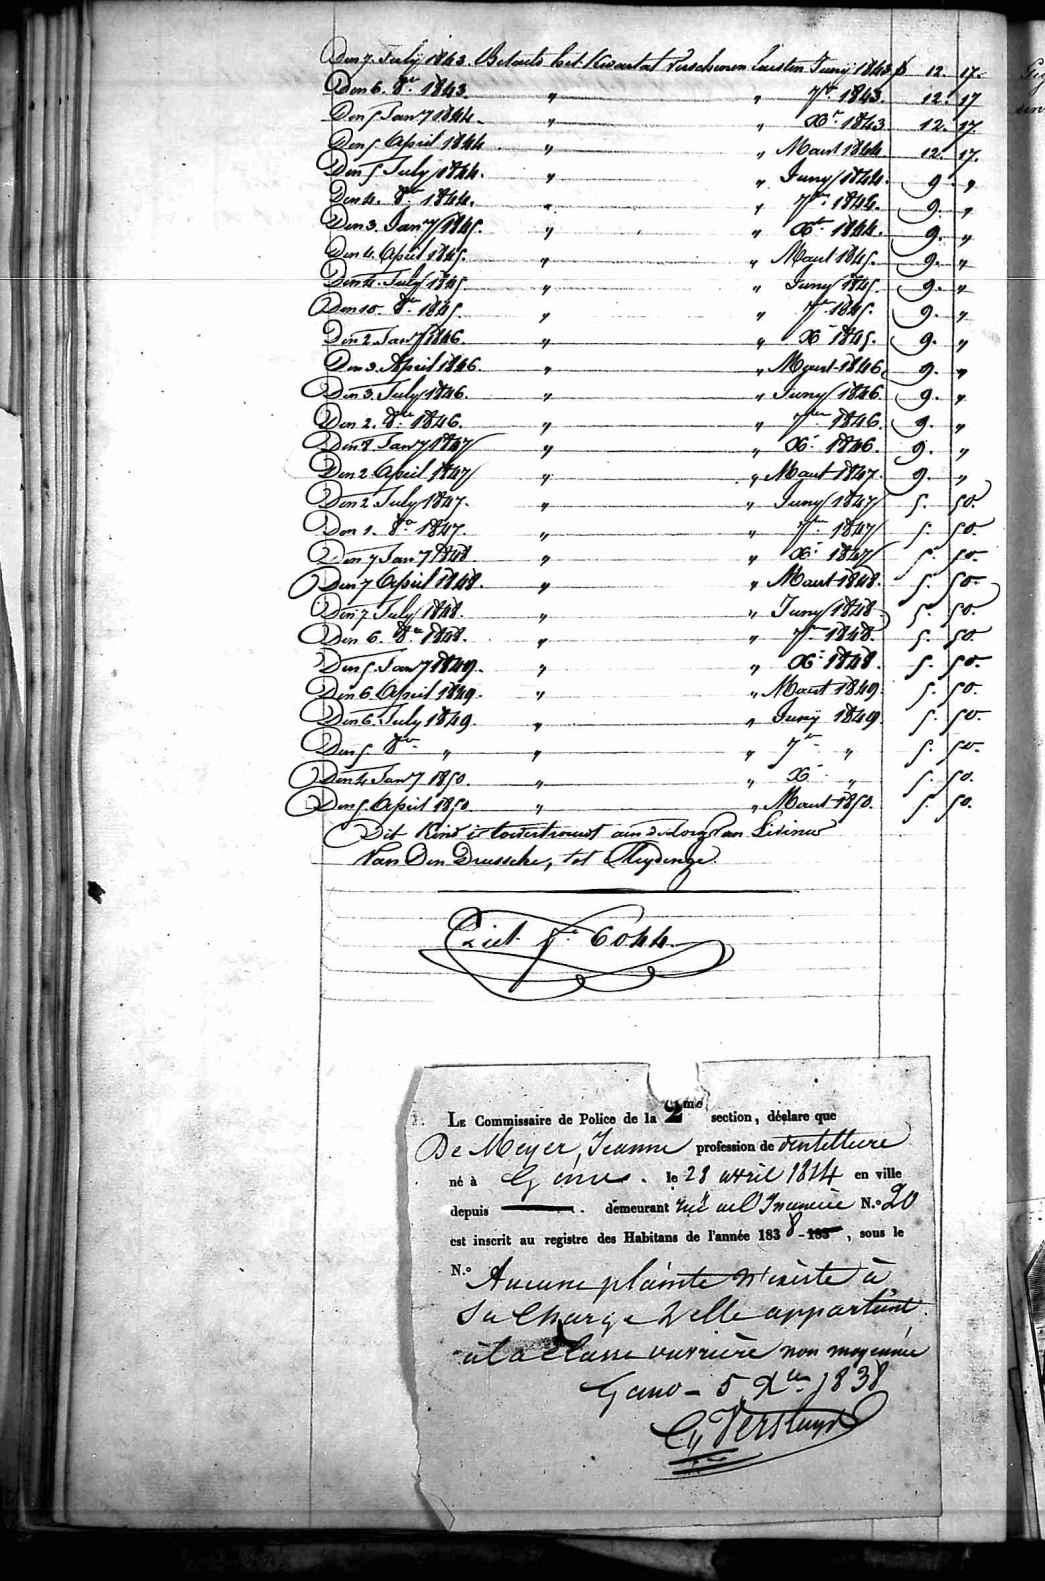 Den 7. July 1843. Betaelt het kwartael verschenen laesten Juny 1843 f 12. 17.
Den 6. 8re 1843. " " 7re 1843. 12. 17
Den 5 Jany 1844. " " Xr 1843. 12. 17.
Den 5 April 1844 " " Maert 1844 12. 17.
Den 5 July 1844. " " Juny 1844. 9. "
Den 4. 8re 1844. " " 7re 1844. 9. "
Den 3. Jany 1845. " " Xre 1844. 9. "
Den 4. April 1845. " " Maert 1845. 9. "
Den 4. July 1845. " " Juny 1845. 9. "
Den 10. 8re 1845. " " 7re 1845. 9. "
Den 2. Jany 1846. " " X 1845. 9. "
Den 3. April 1846. " " Maert 1846. 9. "
Den 3. July 1846. " " Juny 1846. 9. "
Den 2. 8re 1846. " " 7re 1846. 9. "
Den 8 Jany 1847 " " X. 1846. 9. "
Den 2. April 1847 " " Maert 1847. 9. "
Den 2. July 1847. " " Juny 1847 5. 50.
Den 1. 8re 1847. " " 7re 1847 5. 50.
Den 7 Jany 1848. " " X. 1847 5. 50.
Den 7 April 1848. " " Maert 1848. 5. 50.
Den 7 July 1848. " " Juny 1848 5. 50.
Den 6. 8re 1848. " " 7re 1848. 5. 50.
Den 5. Jany 1849. " " X. 1848. 5. 50.
Den 6. April 1849. " " Maert 1849. 5. 50.
Den 6. July 1849. " " Juny 1849. 5. 50.
Den 5. 8re " " " 7re " 5. 50.
Den 4 Jany 1850. " " X. " 5. 50.
Den 5. April 1850 " " Maert 1850. 5. 50.
Dit kind is toevertrouwt aen de zorg van Livinus
Van Den Driessche, tot Meygem.
Ziet No 6044.
LE Commissaire de Police de la 2me section, déclare que
De Meyer, Jeanne profession de dentelliere
né à Gand. le 28 avril 1814 en ville
depuis demeurant rue N.o 20
est inscrit au registre des Habitans de l'année 1838 - 183 , sous le
N.o Aucune plainte n'existe à
sa charge & elle appartient
à la classe ouvrière non moyennée
Gand - 5 Xbre 1838